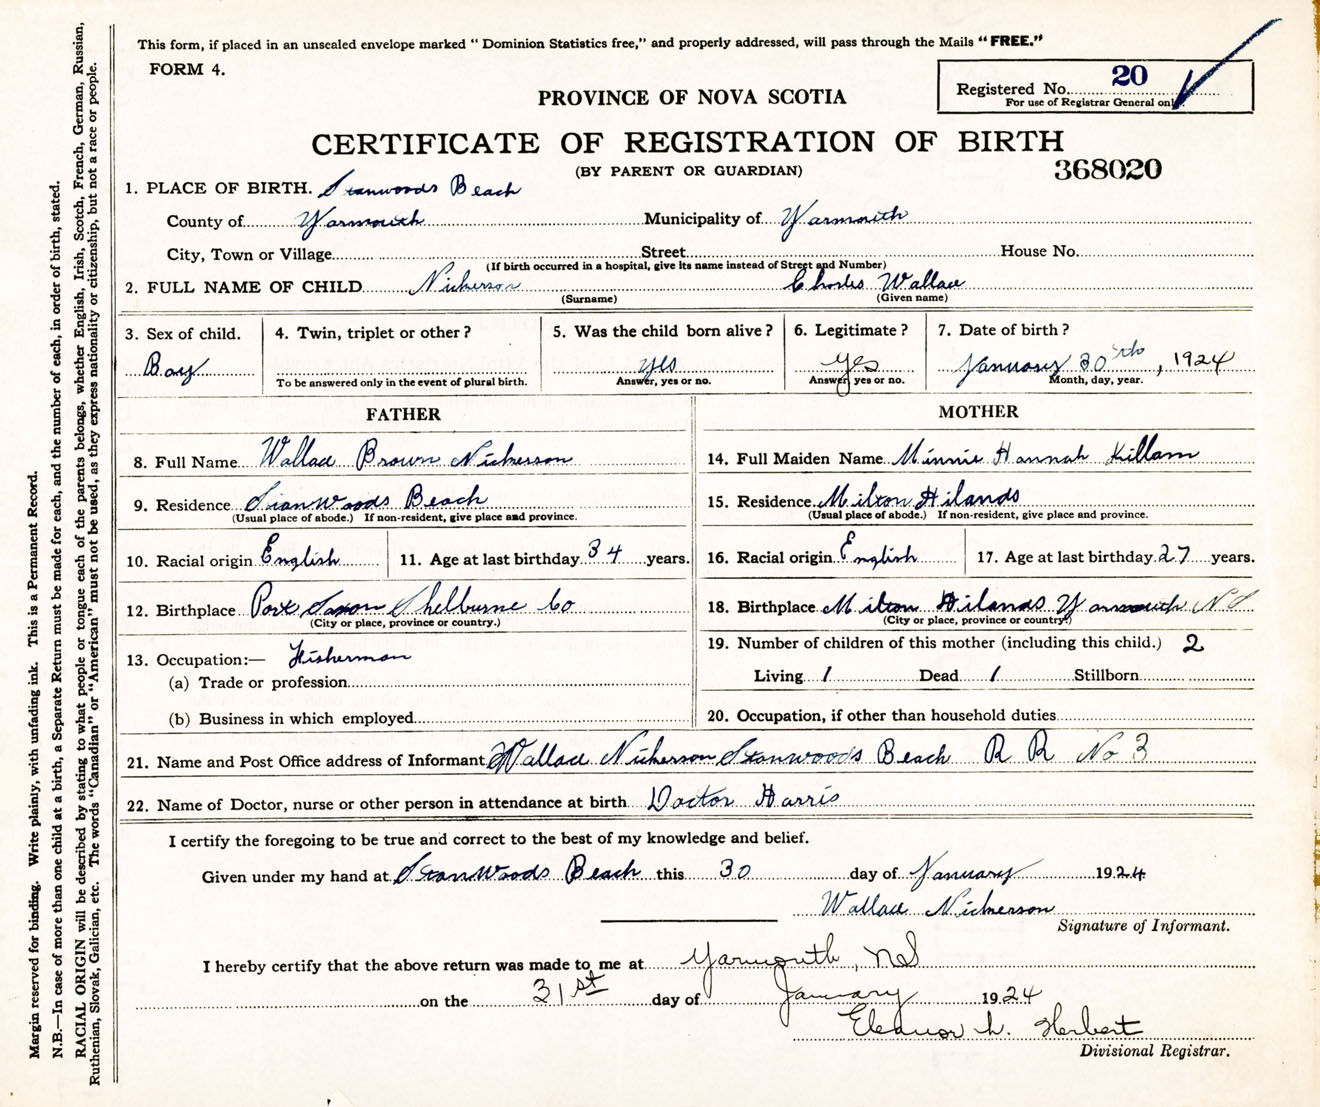 This form, if placed in an unsealed envelope marked "Dominion Statistics free," and properly addressed, will pass through the Mails "FREE."
FORM 4.
Registered No. 20
For use of Registrar General only
PROVINCE OF NOVA SCOTIA
CERTIFICATE OF REGISTRATION OF BIRTH
(BY PARENT OR GUARDIAN)
368020
1. PLACE OF BIRTH. Stanwoods Beach
County of Yarmouth Municipality of Yarmouth
City, Town or Village Street House No.
(If birth occurred in a hospital, give its name instead of Street and Number)
2. FULL NAME OF CHILD Nickerson Charles Wallace
(Surname) (Given name)
3. Sex of child. 4. Twin, triplet or other? 5. Was the child born alive? 6. Legitimate? 7. Date of birth?
Boy yes yes January 30th, 1924
To be answered only in the event of plural birth. Answer, yes or no. Answer, yes or no. Month, day, year.
FATHER
8. Full Name Wallace Brown Nickerson
9. Residence Stanwoods Beach
(Usual place of abode.) If non-resident, give place and province.
10. Racial origin English 11. Age at last birthday 34 years.
12. Birthplace Port Saxon Shelburne Co
(City or place, province or country.)
13. Occupation:— Fisherman
(a) Trade or profession
(b) Business in which employed
MOTHER
14. Full Maiden Name Minnie Hannah Killam
15. Residence Milton Hilands
(Usual place of abode.) If non-resident, give place and province.
16. Racial origin English 17. Age at last birthday 27 years.
18. Birthplace Milton Hilands Yarmouth NS
(City or place, province or country.)
19. Number of children of this mother (including this child.) 2
Living 1 Dead 1 Stillborn
20. Occupation, if other than household duties
21. Name and Post Office address of Informant Wallace Nickerson Stanwoods Beach R R No 3
22. Name of Doctor, nurse or other person in attendance at birth Doctor Harris
I certify the foregoing to be true and correct to the best of my knowledge and belief.
Given under my hand at Stanwoods Beach this 30 day of January 1924
Wallace Nickerson
Signature of Informant.
I hereby certify that the above return was made to me at Yarmouth, NS
on the 31st day of January 1924
Eleanor L. Herbert
Divisional Registrar.
Margin reserved for binding. Write plainly, with unfading ink. This is a Permanent Record.
N.B.—In case of more than one child at a birth, a Separate Return must be made for each, and the number of each, in order of birth, stated.
RACIAL ORIGIN will be described by stating to what people or tongue each of the parents belongs, whether English, Irish, Scotch, French, German, Russian,
Ruthenian, Slovak, Galician, etc. The words "Canadian" or "American" must not be used, as they express nationality or citizenship, but not a race or people.